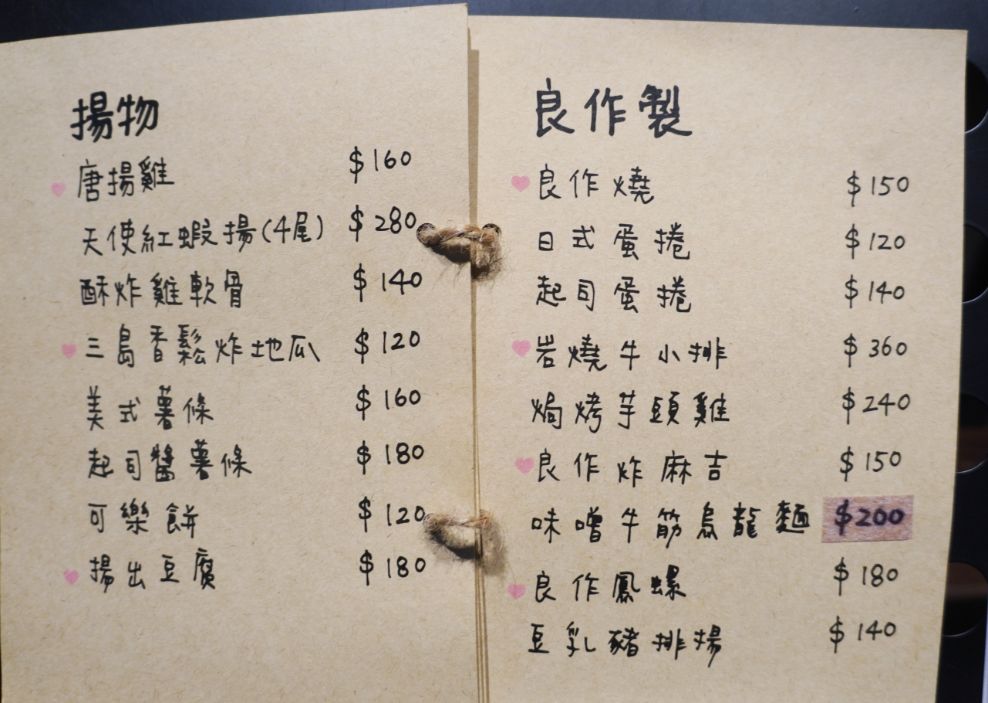 揚物
唐揚雞 $160
天使紅蝦揚(4尾) $280
酥炸雞軟骨 $140
三島香鬆炸地瓜 $120
美式薯條 $160
起司醬薯條 $180
可樂餅 $120
揚出豆腐 $180
良作製
良作燒 $150
日式蛋捲 $120
起司蛋捲 $140
岩燒牛小排 $360
焗烤芋頭雞 $240
良作炸麻吉 $150
味噌牛筋烏龍麵 $200
良作鳳螺 $180
豆乳豬排揚 $140